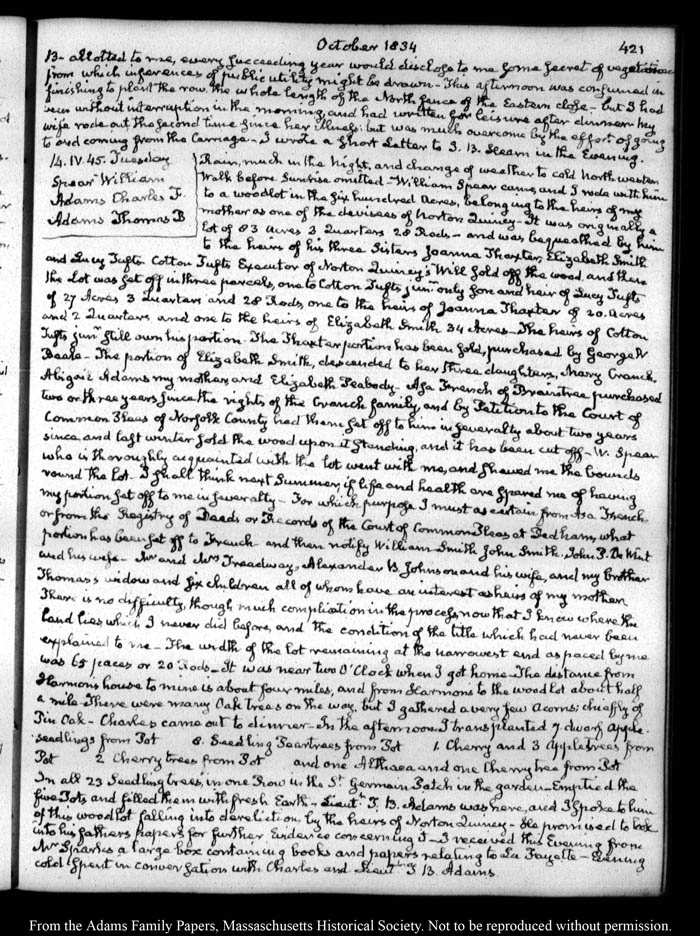 October 1834 421
13- allotted to me, every succeeding year would disclose to me some secret of vegetation
from which inferences of public utility might be drawn - This afternoon was consumed in
finishing to plant the row, the whole length of the North fence of the Eastern close - but I had
been without interruption in the morning, and had written for leisure after dinner - My
wife rode out, the second time since her illness: but was much overcome by the effort of going
to and coming from the Carriage - I wrote a short Letter to S. B. in the Evening.
14. IV. 45. Tuesday
Spear William
Adams Charles F.
Adams Thomas B
Rain, much in the Night, and change of weather to cold North wester
Walk before Sunrise omitted - William Spear came, and I rode with him
to a woodlot in the six hundred Acres, belonging to the heirs of my
mother as one of the devisees of Norton Quincy - It was originally a
lot of 83 Acres 3 Quarters 28 Rods - and was bequeathed by him
to the heirs of his three Sisters Joanna Thaxter, Elizabeth Smith
and Lucy Tufts Cotton Tufts Executor of Norton Quincy's Will sold off the wood, and then
the Lot was set off in three parcels, one to Cotton Tufts junr only son and heir of Lucy Tufts
of 27 Acres 3 Quarters and 28 Rods, one to the heirs of Joanna Thaxter of 20. Acres
and 2 Quarters and one to the heirs of Elizabeth Smith 34 Acres - The heirs of Cotton
Tufts junr still own his portion. The Thaxter portion has been sold, purchased by George W
Beale - The portion of Elizabeth Smith, descended to her three daughters, Mary Cranch,
Abigail Adams my mother, and Elizabeth Peabody - Asa French of Braintree purchased
two or three years since the rights of the Cranch family, and by Petition to the Court of
Common Pleas of Norfolk County had them set off to him in severalty about two years
since, and last winter sold the wood upon it standing, and it has been cut off - W. Spear
who is thoroughly acquainted with the lot went with me, and shewed me the bounds
round the Lot - I shall think next Summer, if life and health are spared me of having
my portion set off to me in severalty - For which purpose I must ascertain from Asa French
or from the Registry of Deeds or Records of the Court of Common Pleas at Dedham, what
portion has been set off to French - and then notify William Smith, John Smith, John P. De Wint
and his wife - Mr and Mrs Treadway, Alexander B Johnson and his wife, and my brother
Thomas's widow and six children all of whom have an interest as heirs of my mother
There is no difficulty, though much complication in the process, now that I know where the
land lies which I never did before, and the condition of the title which had never been
explained to me - The width of the lot remaining at the narrowest end as paced by me
was 65 paces or 20 Rods - It was near two O'Clock when I got home - The distance from
Harmon's house to mine is about four miles, and from Harmons to the woodlot about half
a mile - There were many Oak trees on the way, but I gathered a very few Acorns; chiefly of
Pin Oak - Charles came out to dinner - In the afternoon I transplanted 7 dwarf Apple.
Seedlings from Pot 8. Seedling Peartrees from Pot 1. Cherry and 3 Appletrees from
Pot 2 Cherry trees from Pot and one Althaea and one Cherry tree from Pot
In all 23 Seedling trees, in one Row in the St Germain Patch in the garden - Emptied the
five Pots and filled them with fresh Earth - Lieutt T. B. Adams was here, and I spoke to him
of this woodlot falling into dereliction by the heirs of Norton Quincy - He promised to look
into his fathers papers for further Evidence concerning it - I received this Evening from
Mr Sparks a large box containing books and papers relating to La Fayette - Evening
cold Spent in conversation with Charles and Lieut T. B. Adams
From the Adams Family Papers, Massachusetts Historical Society. Not to be reproduced without permission.